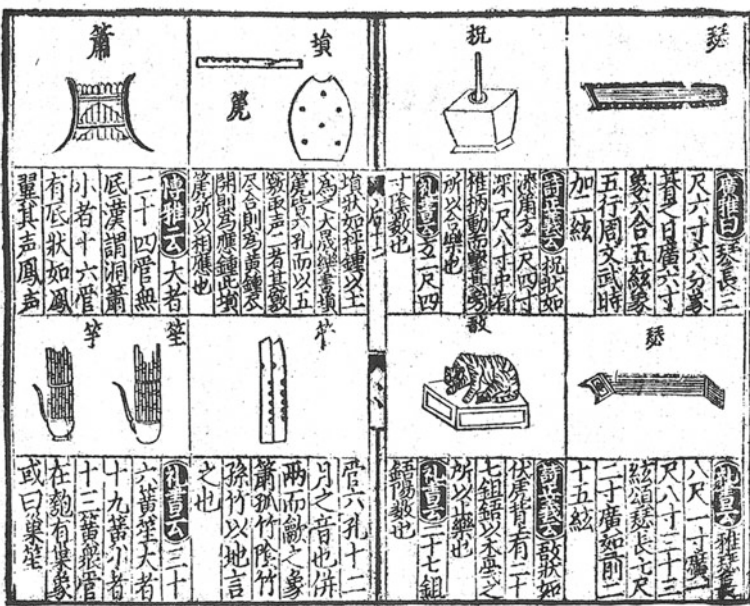 琴
廣雅曰琴長三
尺六寸六分象
朞之日廣六寸
象六合五絃象
五行周文武時
加二絃
柷
詩正義云柷狀如
漆筩方二尺四寸
深一尺八寸中有
椎柄動而擊其旁
所以合樂也
礼書云方二尺四
寸陰數也
塤
篪
塤狀如秤鍾以土
為之大晟樂書塤
篪皆六孔而以五
竅取声一者其竅
尽合則為黃鍾尽
開則為應鍾此塤
篪所以相應也
簫
博雅云大者
二十四管無
底漢謂洞簫
小者十六管
有底狀如鳳
翼其声鳳声
瑟
礼書云雅瑟長
八尺一寸廣一
尺八寸二十三
絃頌瑟長七尺
二寸廣如前二
十五絃
敔
詩正義云敔狀如
伏虎背上有二十
七鉏鋙以木長之
所以止樂也
礼書云二十七鉏
鋙陽數也
管六孔十二
月之音也併
兩而歛之象
簫孤竹陰竹
孫竹以地言
之也
笙
竽
礼書云三十
六簧笙大者
十九簧小者
十三簧眾管
在匏有巢象
或曰巢笙